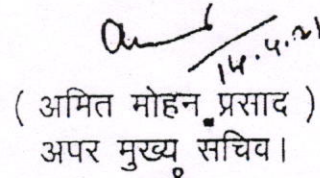 14.4.21
( अमित मोहन प्रसाद )
अपर मुख्य सचिव।